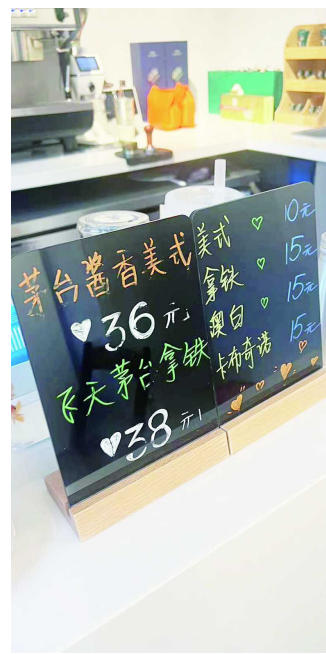 茅台酱香美式
36元
飞天茅台拿铁
38元
美式 10元
拿铁 15元
澳白 15元
卡布奇诺 15元